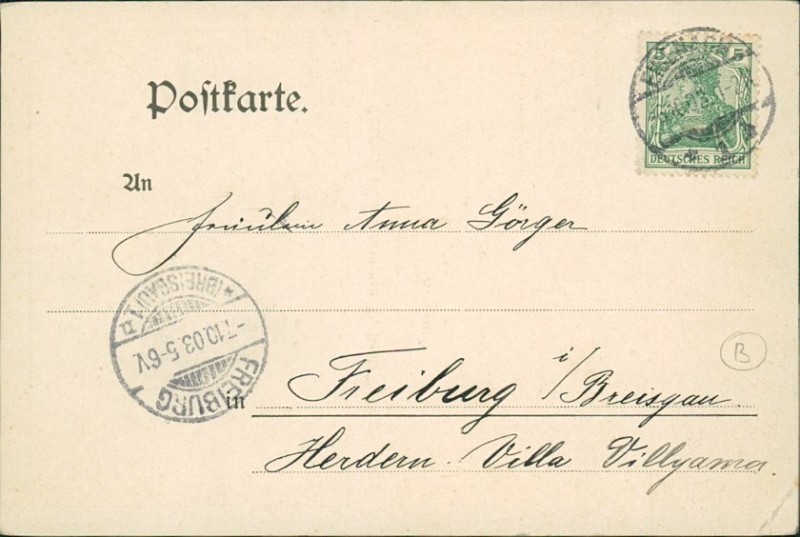 Postkarte.
5 5
DEUTSCHES REICH
An
Fräulein Anna Görger
FREIBURG (BREISGAU)
-7.10.03.5-6V.
in Freiburg i/Breisgau.
Herdern. Villa
B